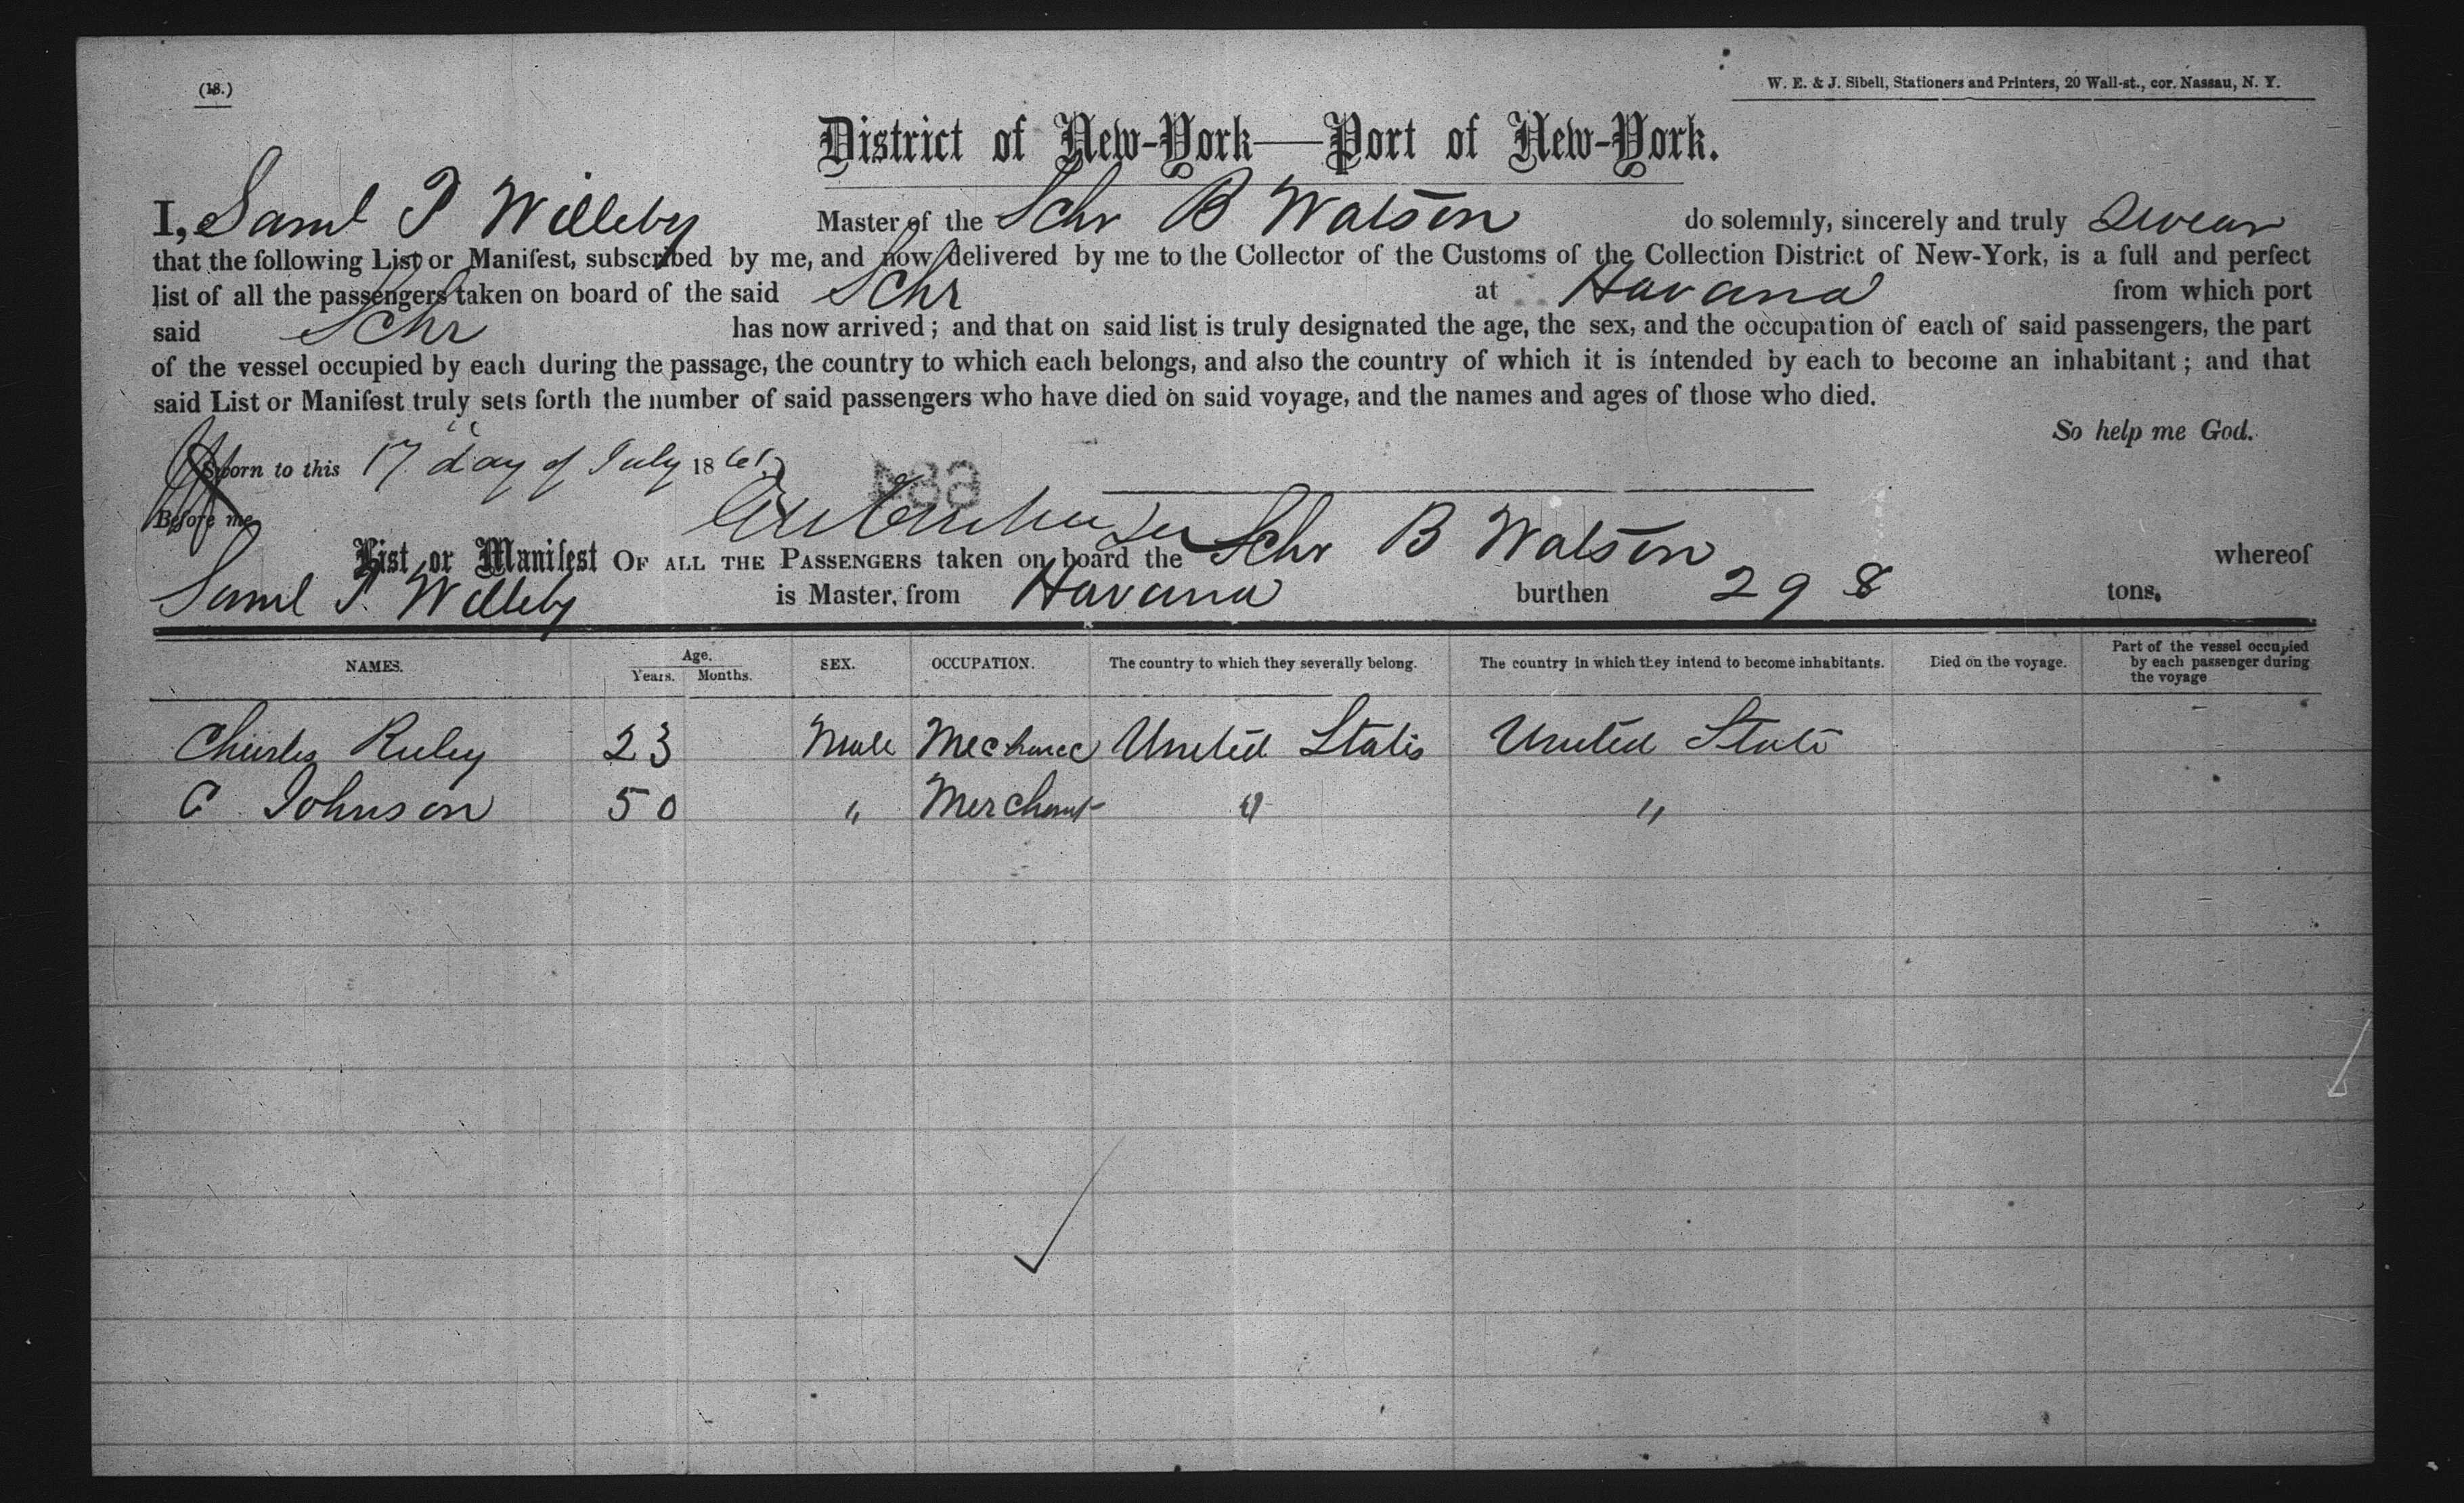 (18.)
W. E. & J. Sibell, Stationers and Printers, 20 Wall-st., cor. Nassau, N. Y.
District of New-York—Port of New-York.
I, Saml P Willeby Master of the Schr B Watson do solemnly, sincerely and truly Swear
that the following List or Manifest, subscribed by me, and now delivered by me to the Collector of the Customs of the Collection District of New-York, is a full and perfect
list of all the passengers taken on board of the said Schr at Havana from which port
said Schr has now arrived; and that on said list is truly designated the age, the sex, and the occupation of each of said passengers, the part
of the vessel occupied by each during the passage, the country to which each belongs, and also the country of which it is intended by each to become an inhabitant; and that
said List or Manifest truly sets forth the number of said passengers who have died on said voyage, and the names and ages of those who died.
So help me God.
Sworn to this 17 day of July 1861
Before me
List or Manifest OF ALL THE PASSENGERS taken on board the Schr B Watson whereof
Saml P. Willeby is Master, from Havana burthen 298 tons.
NAMES. Age. Years. Months. SEX. OCCUPATION. The country to which they severally belong. The country in which they intend to become inhabitants. Died on the voyage. Part of the vessel occupied by each passenger during the voyage
Charles Ruley 23 Male Mechanic United States United States
C Johnson 50 " Merchant " "